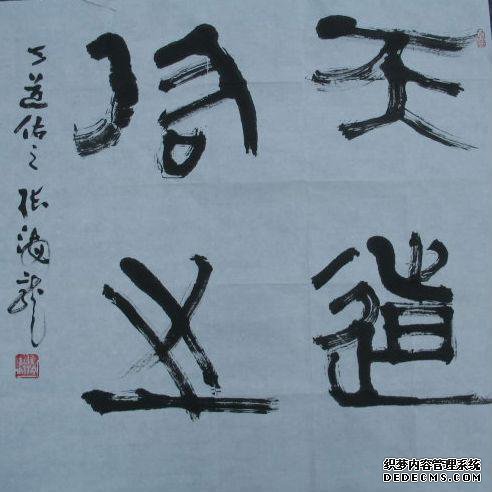 天道
佑之
天道佑之 张海龙
织梦内容管理系统
DEDECMS.COM